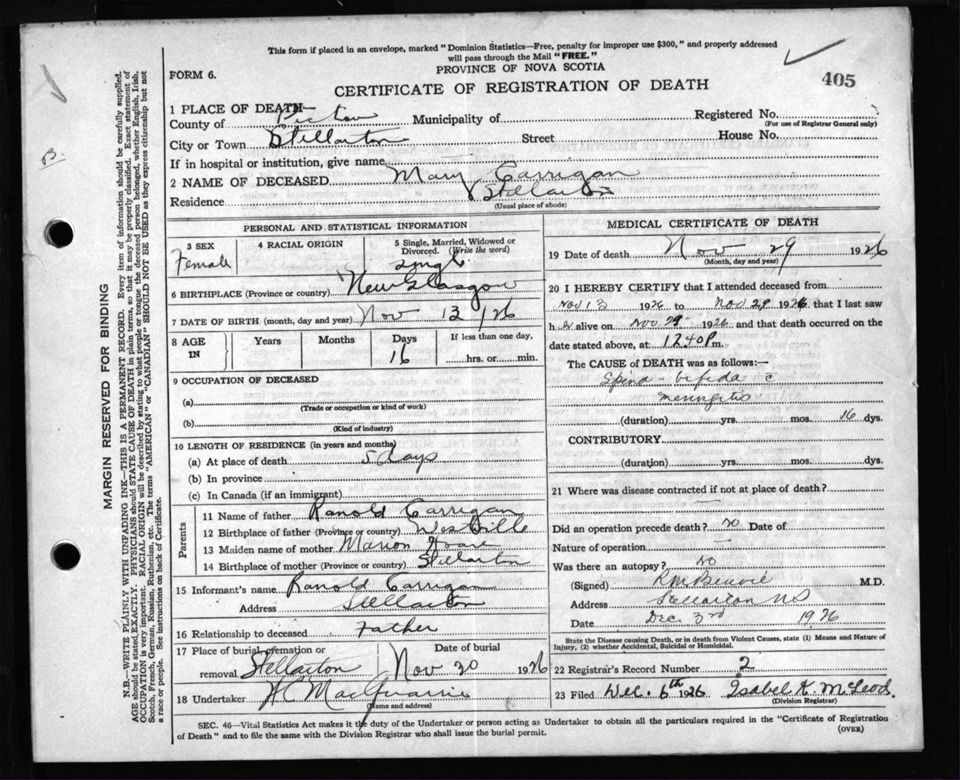 This form if placed in an envelope, marked "Dominion Statistics—Free, penalty for improper use $300," and properly addressed
will pass through the Mail "FREE."
PROVINCE OF NOVA SCOTIA
FORM 6.
CERTIFICATE OF REGISTRATION OF DEATH
405
1 PLACE OF DEATH—
County of Pictou Municipality of Registered No.
(For use of Registrar General only)
City or Town Stellarton Street House No.
If in hospital or institution, give name
2 NAME OF DECEASED Mary Carrigan
Residence Stellarton
(Usual place of abode)
PERSONAL AND STATISTICAL INFORMATION
3 SEX Female
4 RACIAL ORIGIN
5 Single, Married, Widowed or Divorced. (Write the word) Single
6 BIRTHPLACE (Province or country) New Glasgow
7 DATE OF BIRTH (month, day and year) Nov 13 / 26
8 AGE IN Years Months Days 16 If less than one day, hrs. or min.
9 OCCUPATION OF DECEASED
(a) (Trade or occupation or kind of work)
(b) (Kind of industry)
10 LENGTH OF RESIDENCE (in years and months)
(a) At place of death 5 days
(b) In province
(c) In Canada (if an immigrant)
Parents
11 Name of father Ranold Carrigan
12 Birthplace of father (Province or country) Westville
13 Maiden name of mother Marion
14 Birthplace of mother (Province or country) Stellarton
15 Informant's name Ranold Carrigan
Address Stellarton
16 Relationship to deceased Father
17 Place of burial, cremation or removal Stellarton Date of burial Nov 30 1926
18 Undertaker
(name and address)
MEDICAL CERTIFICATE OF DEATH
19 Date of death Nov 29 1926
(Month, day and year)
20 I HEREBY CERTIFY that I attended deceased from
Nov 13 1926 to Nov 29 1926 that I last saw
h er alive on Nov 29 1926 and that death occurred on the
date stated above, at 12 40 P m.
The CAUSE OF DEATH was as follows:—
Spina-bifida c
meningitis
(duration) yrs. mos. 16 dys.
CONTRIBUTORY
(duration) yrs. mos. dys.
21 Where was disease contracted if not at place of death?
Did an operation precede death? no Date of
Nature of operation
Was there an autopsy? no
(Signed) M.D.
Address Stellarton NS
Date Dec. 3rd 1926
State the Disease causing Death, or in death from Violent Causes, state (1) Means and Nature of
Injury, (2) whether Accidental, Suicidal or Homicidal.
22 Registrar's Record Number 2
23 Filed Dec. 6th 1926 Isabel K. McLeod.
(Division Registrar)
SEC. 46—Vital Statistics Act makes it the duty of the Undertaker or person acting as Undertaker to obtain all the particulars required in the "Certificate of Registration
of Death" and to file the same with the Division Registrar who shall issue the burial permit.
(OVER)
MARGIN RESERVED FOR BINDING
N.B.—WRITE PLAINLY WITH UNFADING INK—THIS IS A PERMANENT RECORD. Every item of information should be carefully supplied.
AGE should be stated EXACTLY. PHYSICIANS should STATE CAUSE OF DEATH in plain terms, so that it may be properly classified. Exact statement of
OCCUPATION is very important. RACIAL ORIGIN will be described by stating to what people or tongue the deceased person belonged, whether English, Irish,
Scotch, French, German, Russian, Ruthenian, etc. The terms "AMERICAN" or "CANADIAN" SHOULD NOT BE USED as they express citizenship but not
a race or people. See instructions on back of Certificate.